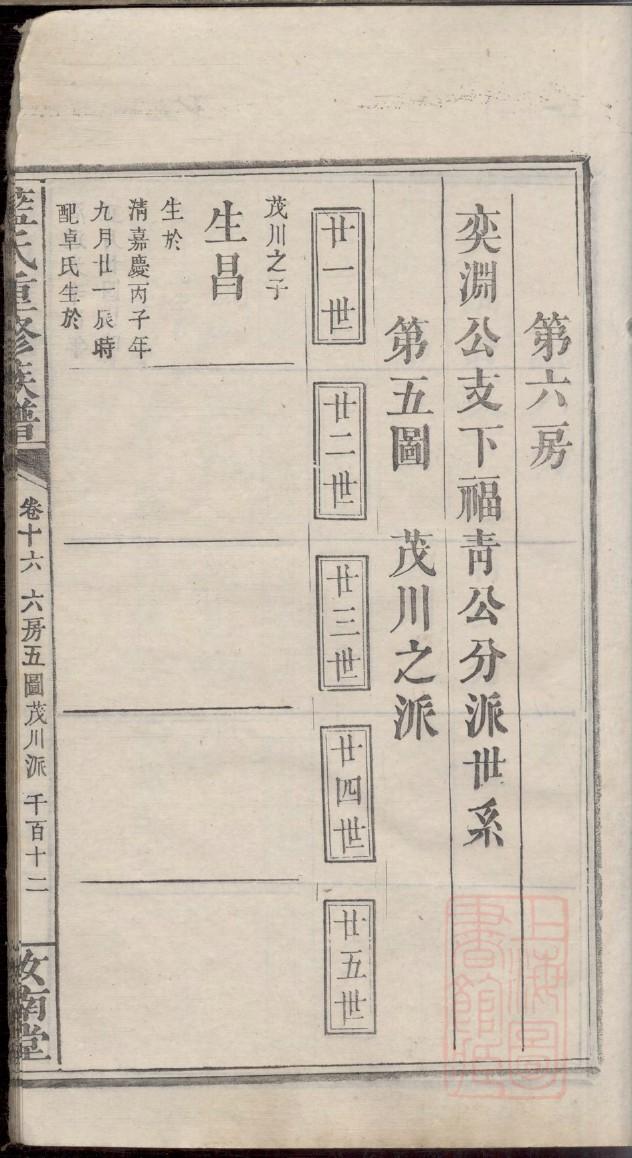 第六房
奕淵公支下福青公分派世系
第五圖 茂川之派
廿一世
廿二世
廿三世
廿四世
廿五世
茂川之子
生昌
生於
清嘉慶丙子年
九月廿一辰時
配卓氏生於
藍氏重修族譜
卷十六 六房五圖茂川派 千百十二
汝南堂
上海圖書館藏